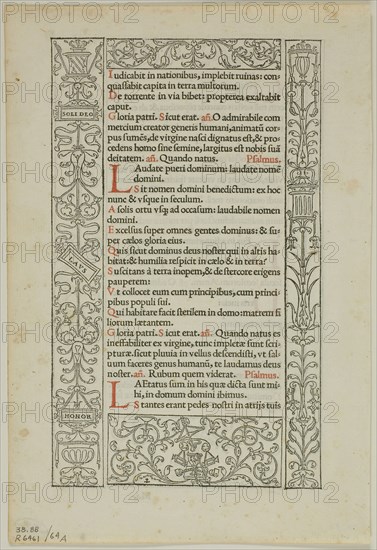 Iudicabit in nationibus, implebit ruinas: con-
quassabit capita in terra multorum.
De torrente in via bibet: propterea exaltabit
caput.
Gloria patri. Sicut erat. añ. O admirabile com
mercium creator generis humani, animatũ cor
pus sumẽs, de virgine nasci dignatus est, & pro
cedens homo sine semine, largitus est nobis suã
deitatem. añ. Quando natus. Psalmus.
LAudate pueri dominum: laudate nomẽ
domini.
Sit nomen domini benedictum: ex hoc
nunc & vsque in seculum.
A solis ortu vsq; ad occasum: laudabile nomen
domini.
Excelsus super omnes gentes dominus: & su-
per cælos gloria eius.
Quis sicut dominus deus noster qui in altis ha
bitat: & humilia respicit in cælo & in terra?
Suscitans à terra inopem, & de stercore erigens
pauperem:
Vt collocet eum cum principibus, cum princi-
pibus populi sui.
Qui habitare facit sterilem in domo: matrem fi
liorum lætantem.
Gloria patri. Sicut erat. añ. Quando natus es
ineffabiliter ex virgine, tunc impletæ sunt scri-
pturæ. sicut pluuia in vellus descendisti, vt sal-
uum faceres genus humanũ, te laudamus deus
noster. añ. Rubum quem viderat. Psalmus.
LAEtatus sum in his quæ dicta sunt mi-
hi, in domum domini ibimus.
Stantes erant pedes nostri in atrijs tuis
SOLI DEO
LAVS
HONOR
38.88
R6461/64A